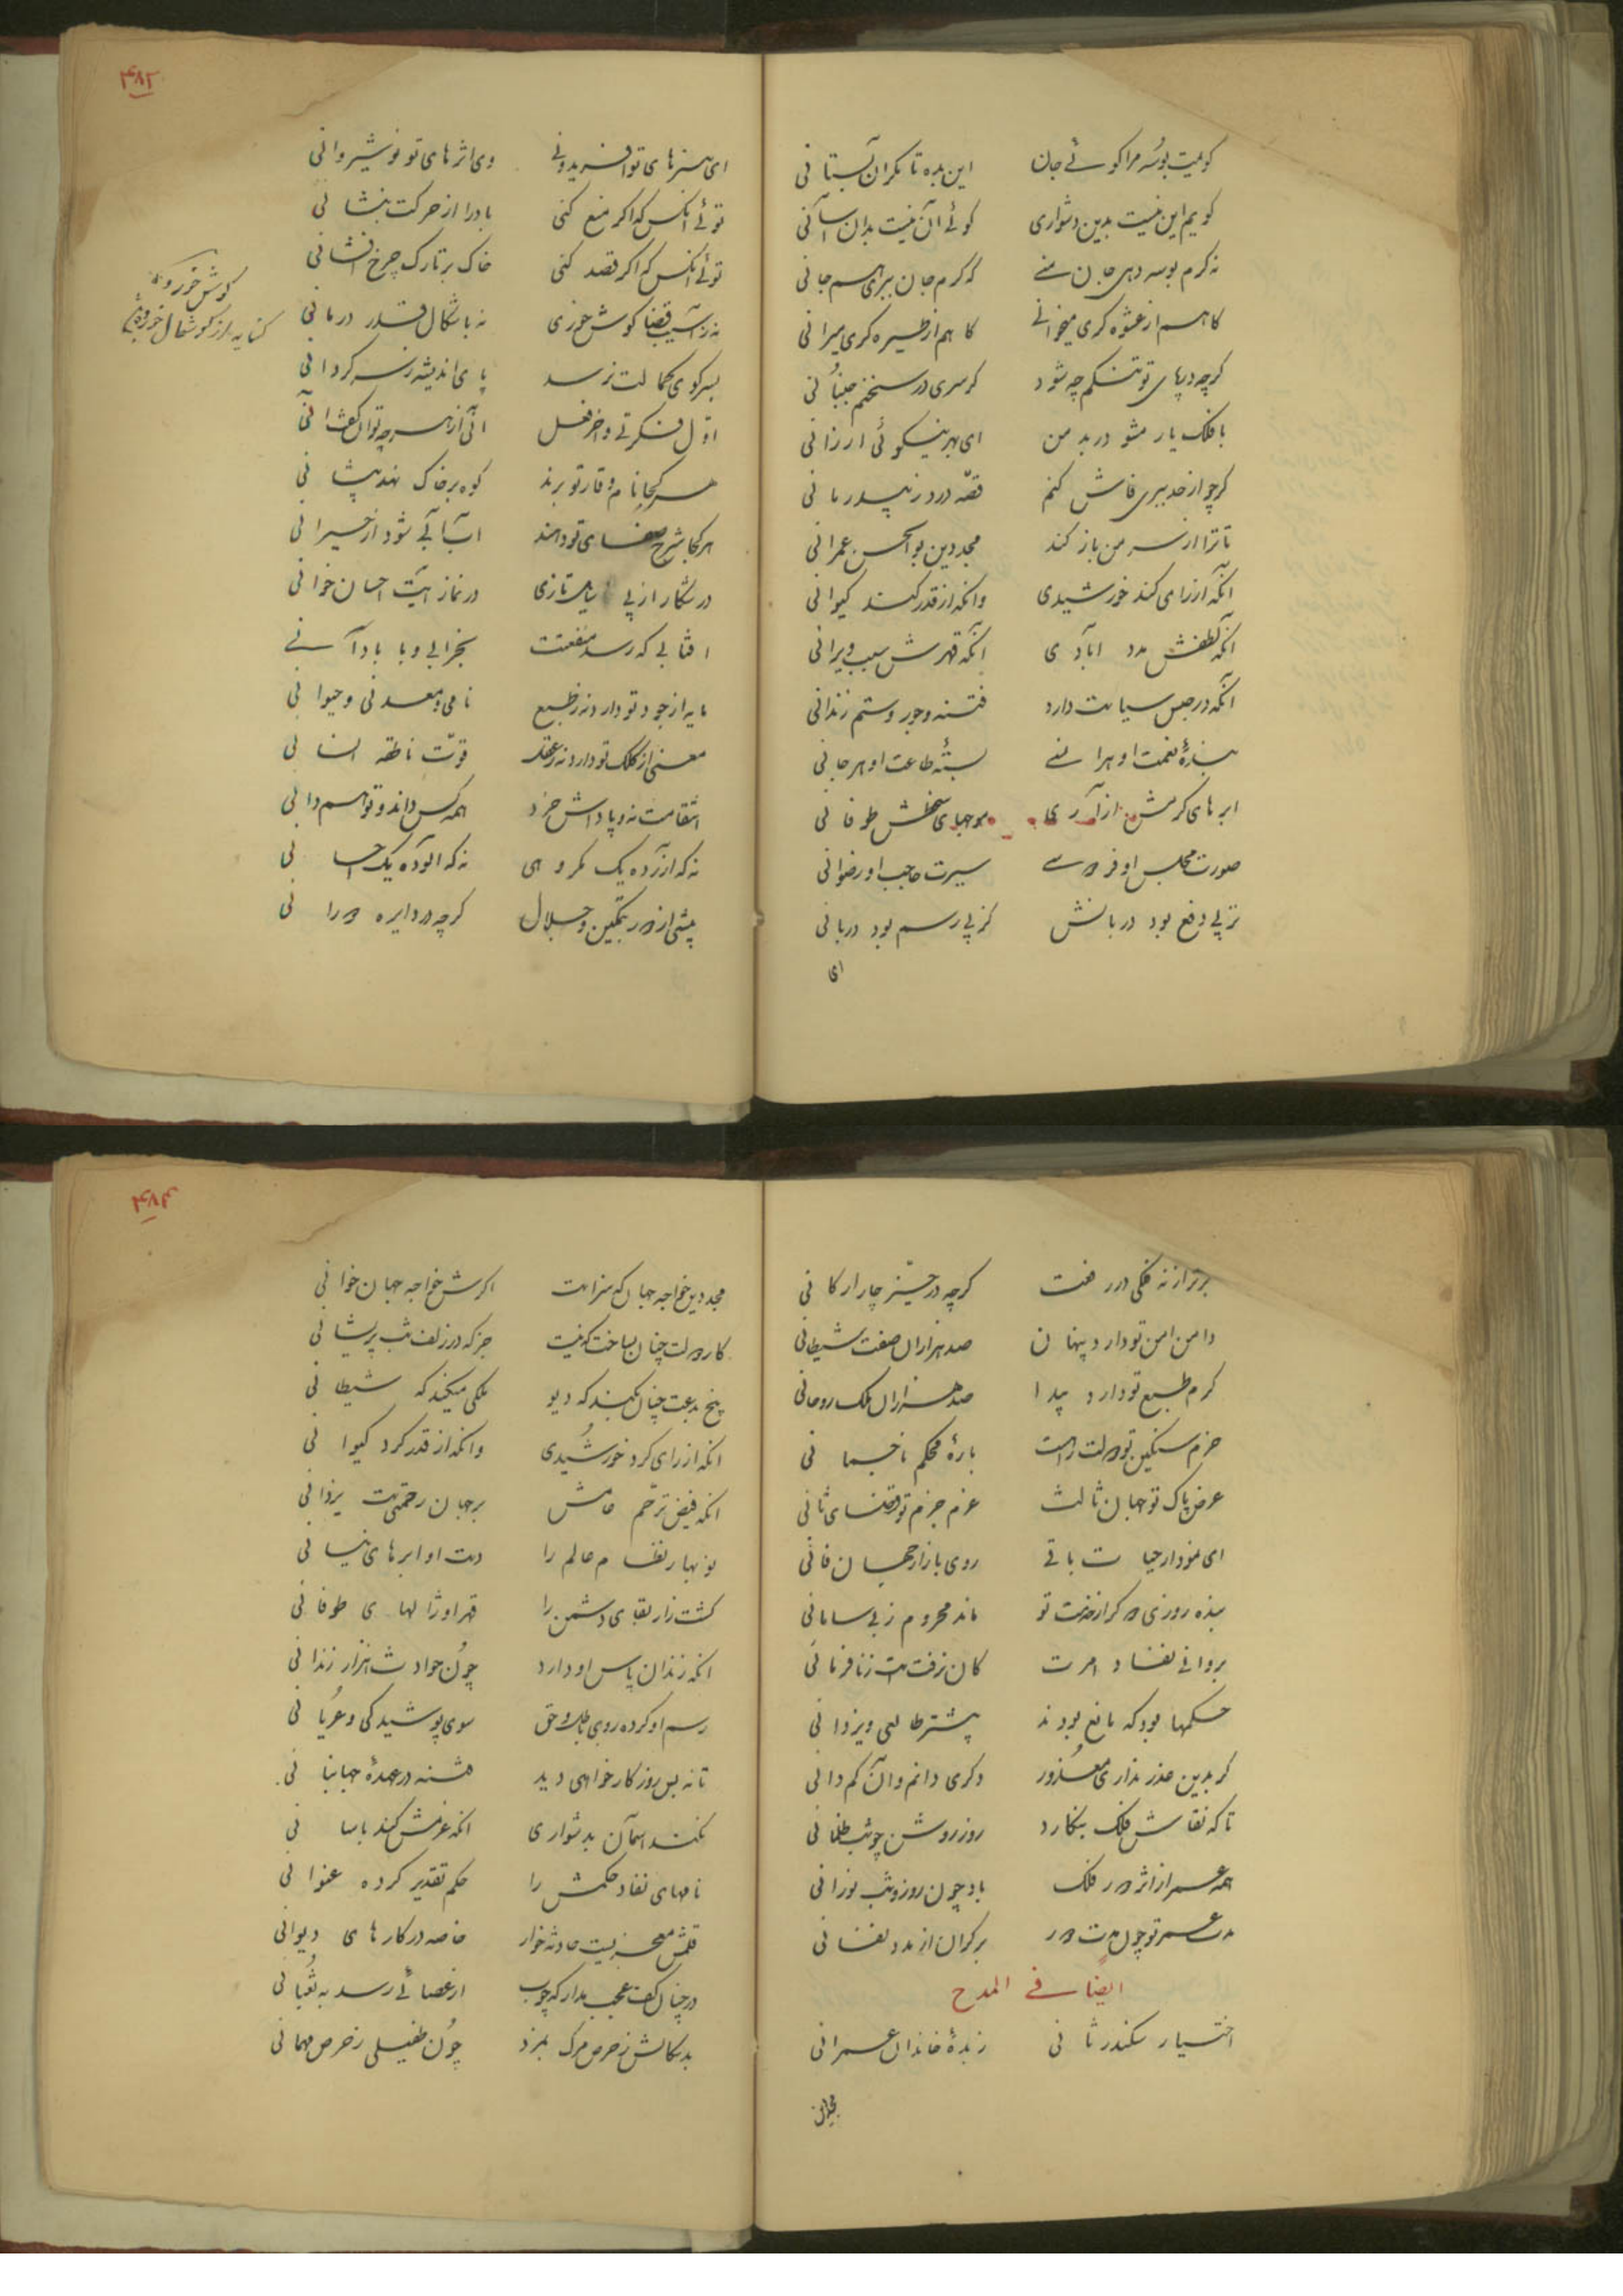 گویمت بوسه مرا گوئے جان این بده تا نگران آن بستانی
گویم این نیست بدین دشواری گوئے آن نیست بدان آسانی
نه گرم بوسه دهی جان منے که گرم جان ببری هم جانی
گاهم از عشوه گری میخوانے گاهم از طیره گری میرانی
گرچه در پای تو افتم چه شود گر سری در سخنم جنبانی
با فلک یار مشو در بد من ای بهر نیکوئی ارزانی
گرچه از خدمت فاش کنم قصه درد ز بیدرمانی
تا ترا از سر من باز کند مجد دین بوالحسن عمرانی
آنکه از رای کند خورشیدی وانکه از قدر کند کیوانی
آنکه لطفش مدد آبادی آنکه قهرش سبب ویرانی
آنکه در حبس سیاست دارد فتنه و جور و ستم زندانی
بندهٔ نعمت او هر انسے بستهٔ طاعت او هر جانی
ابرهای کرمش آذاری موجهای سخطش طوفانی
صورت مجلس او فردوسے سیرت حاجب او رضوانی
نز پی دفع بود دربانش کز پی رسم بود دربانی
ای
۴۸۲
ای هنرهای تو افریدونے وی اثرهای تو نوشیروانی
توئے آنکس که اگر منع کنی باد را از حرکت بنشانی
توئے آنکس که اگر قصد کنی خاک بر تارک چرخ افشانی
نه ز آسیب قضا گوش خوری نه باشکال قدر درمانی
گوش خوردن
کنایه از گوشمال خوردن
بسر کوی کمالت نرسد پای اندیشه ز سرگردانی
اول فکرتے و آخر فعل آنی از هرچه توان گفت آنی
هر کجا نام وقار تو برند کوه بر خاک نهد پیشانی
هر کجا شرح صفای تو دهند آب آبے شود از حیرانی
در شکار از پی تازی در نماز آیت احسان خوانی
آفتابی که رسد منفعتت بخرابی و بآبادانے
مایه از جود تو دارد نه ز طبع نامی و معدنی و حیوانی
معنی از کلک تو دارد نه ز عقل قوت ناطقه انسانی
انتقامت نه و پاداش خرد همه کس داند و تو هم دانی
نه که آزرده یک مکروهی نه که آلوده یک احسانی
بیشی از دور بتمکین و جلال گرچه در دایره دورانی
برتر از نه فلکی در رفعت گرچه در حیز چار ارکانی
دامن امن تو دارد پنهان صد هزاران صفت شیطانی
کرم طبع تو دارد پیدا صد هزاران ملک روحانی
حزم سنگین تو دولت راست بارهٔ محکم نا جسمانی
عرض پاک تو جهان ثالث عزم جزم تو قضای ثانی
ای نمودار حیات باقے روی بازار جهان فانی
بنده روزی دو گر از خدمت تو ماند محروم ز بے سامانی
بروانے نفاذ امرت کان نرفتست ز نافرمانی
حکمها بود که مانع بودند بیشتر طالعی و یزدانی
گر بدین عذر نداری معذور دگری دانم و آن کم دانی
تا که نقاش فلک بنگارد روز روشن چو شب ظلمانی
همه عمر از اثر دور فلک باد چون روز و شب نورانی
مدت عمر تو چون مدت دور بر کران از مدد نقصانی
ایضا فے المدح
اختیار سکندر ثانی زبدهٔ خاندان عمرانی
مجددین
۴۸۳
مجد دین خواجه جهان که سزاست اگرش خواجه جهان خوانی
کار دولت چنان بساخت که نیست جز که در زلف شب پریشانی
بیخ بدعت چنان بکند که دیو ملکی میکند که شیطانی
آنکه از رای کرد خورشیدی وانکه از قدر کرد کیوانی
آنکه فیض ترحم عامش بر جهان رحمتیست یزدانی
نوبهار نظام عالم را دست او ابرهای نیسانی
کشت زار بقای دشمن را قهر او ژالهای طوفانی
آنکه زندان پاس او دارد چون حوادث هزار زندانی
رسم او کرده روی باطل و حق سوی پوشیدگی و عریانی
تا نه بس روزگار خواهی دید فتنه در عهدهٔ جهانبانی
نکند آسمان بدشواری آنکه عزمش کند بآسانی
نامهای نفاذ حکمش را حکم تقدیر کرده عنوانی
قلمش معجزیست حادثه خوار خاصه در کارهای دیوانی
در چنان کف عجب مدار که چوب از عصائے رسد به ثعبانی
بدسگالش ز حرص مرگ بمرد چون طفیلی ز حرص مهمانی